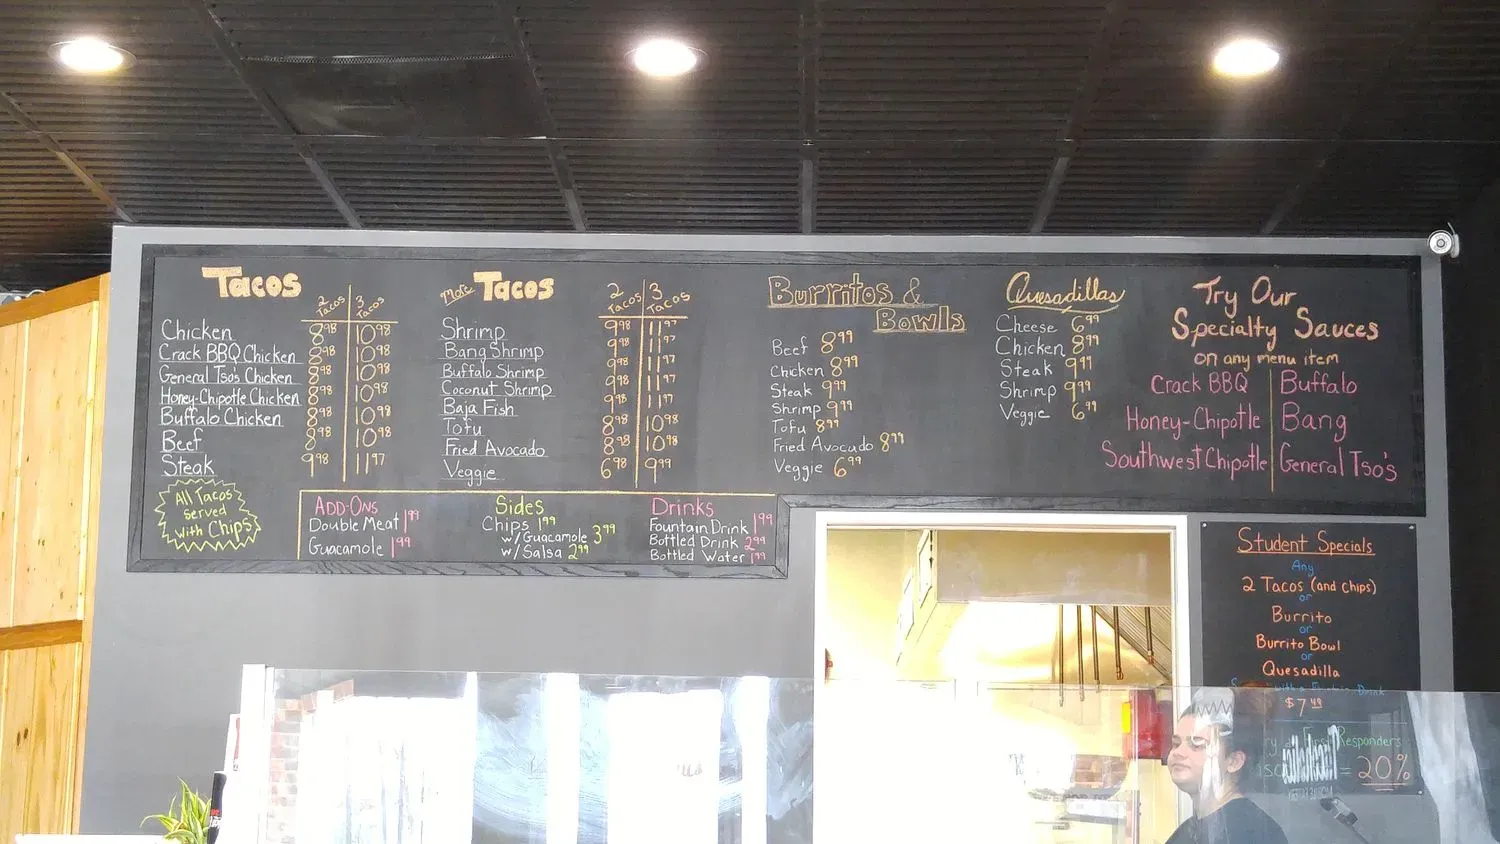 Tacos
2 Tacos 3 Tacos
Chicken 8.98 10.98
Crack BBQ Chicken 8.98 10.98
General Tso's Chicken 8.98 10.98
Honey-Chipotle Chicken 8.98 10.98
Buffalo Chicken 8.98 10.98
Beef 8.98 10.98
Steak 9.98 11.97
All Tacos
served
with Chips
More Tacos
2 Tacos 3 Tacos
Shrimp 9.98 11.97
Bang Shrimp 9.98 11.97
Buffalo Shrimp 9.98 11.97
Coconut Shrimp 9.98 11.97
Baja Fish 9.98 11.97
Tofu 8.98 10.98
Fried Avocado 8.98 10.98
Veggie 6.98 9.99
Add-Ons
Double Meat 1.99
Guacamole 1.99
Sides
Chips 1.99
w/Guacamole 3.99
w/Salsa 2.99
Drinks
Fountain Drink 1.99
Bottled Drink 2.99
Bottled Water 1.99
Burritos &
Bowls
Beef 8.99
Chicken 8.99
Steak 9.99
Shrimp 9.99
Tofu 8.99
Fried Avocado 8.99
Veggie 6.99
Quesadillas
Cheese 6.99
Chicken 8.99
Steak 9.99
Shrimp 9.99
Veggie 6.99
Try Our
Specialty Sauces
on any menu item
Crack BBQ Buffalo
Honey-Chipotle Bang
Southwest Chipotle General Tso's
Student Specials
Any
2 Tacos (and chips)
or
Burrito
or
Burrito Bowl
or
Quesadilla
Drink
$7.49
Responders
= 20%